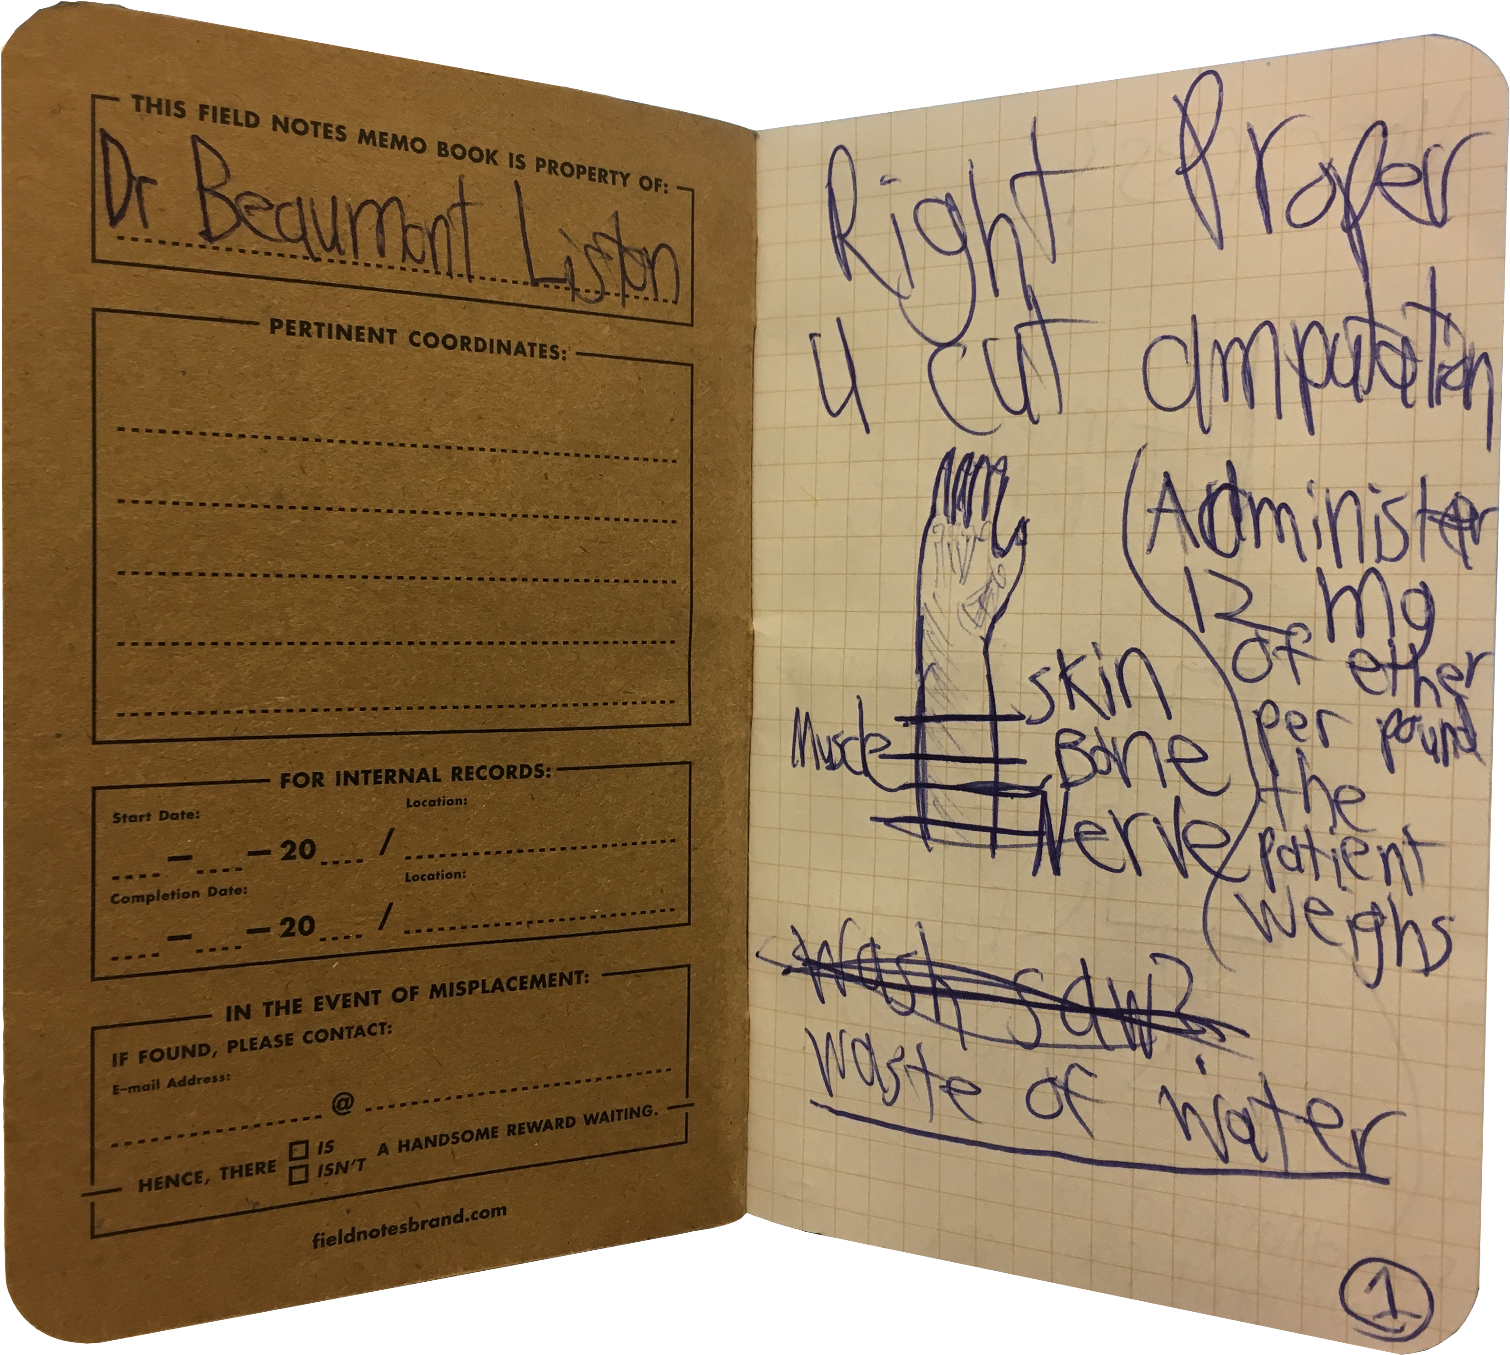 THIS FIELD NOTES MEMO BOOK IS PROPERTY OF:
Dr Beaumont Liston
PERTINENT COORDINATES:
FOR INTERNAL RECORDS:
Start Date:
Location:
— — 20 /
Completion Date:
Location:
— — 20 /
IN THE EVENT OF MISPLACEMENT:
IF FOUND, PLEASE CONTACT:
E-mail Address:
@
HENCE, THERE IS A HANDSOME REWARD WAITING.
ISN'T
fieldnotesbrand.com
Right Proper
4 cut amputation
Administer
12 mg
of ether
per pound
the
patient
weighs
skin
Muscle
Bone
Nerve
Wash saw?
waste of water
1